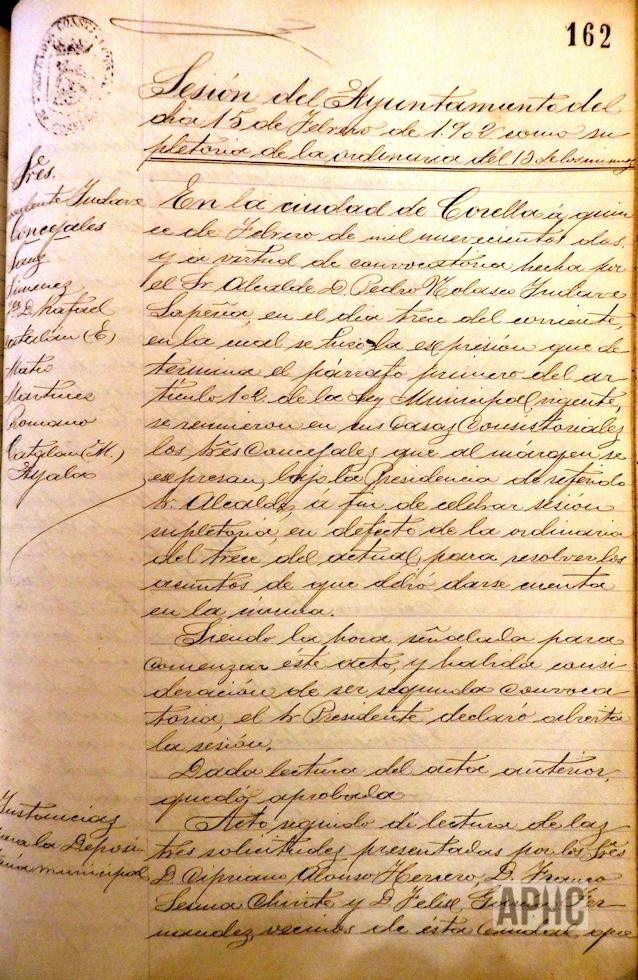 162
Sesión del Ayuntamiento del
dia 15 de Febrero de 1902 como su
pletoria de la ordinaria del 13 de los mismos
Sres.
Concejales
Sanz
Jimenez
D. Rafael
Catalán (E)
Mateo
Martinez
Romano
Catalan (M.)
Ayala
En la ciudad de Corella á quin
ce de Febrero de mil nuevecientos dos,
y a virtud de convocatoria hecha por
el Sr. Alcalde D. Pedro Nolasco Yudarve
Lapeña, en el dia trece del corriente,
en la cual se hizo la expresión que de
termina el párrafo primero del ar
tículo 102 de la Ley Municipal vigente,
se reunieron en sus Casas Consistoriales
los Sres Concejales que al márgen se
expresan, bajo la Presidencia de referido
Sr. Alcalde, á fin de celebrar sesión
supletoria, en defecto de la ordinaria
del trece del actual, para resolver los
asuntos de que debió darse cuenta
en la misma.
Siendo la hora señalada para
comenzar éste acto, y habida consi
deración de ser segunda convoca
toria, el Sr. Presidente declaró abierta
la sesión.
Dada lectura del acta anterior,
quedó aprobada
Instancias
para la Deposi
taria municipal
Acto seguido di lectura de las
tres solicitudes presentadas por los Sres
D. Cipriano Alonso Herrero, D. Franco
Sesma Chivite y D. Felix Fer
nandez, vecinos de ésta Ciudad, que
APHC